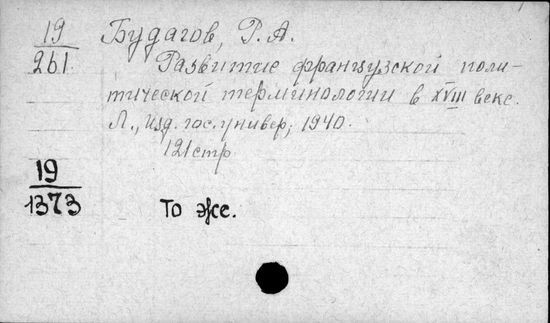 19 Будагов, Р. А.
261. Развитие французской поли-
тической терминологии в XVIII веке.
Л., изд. гос. универ, 1940.
121 стр
19
1373 То же.